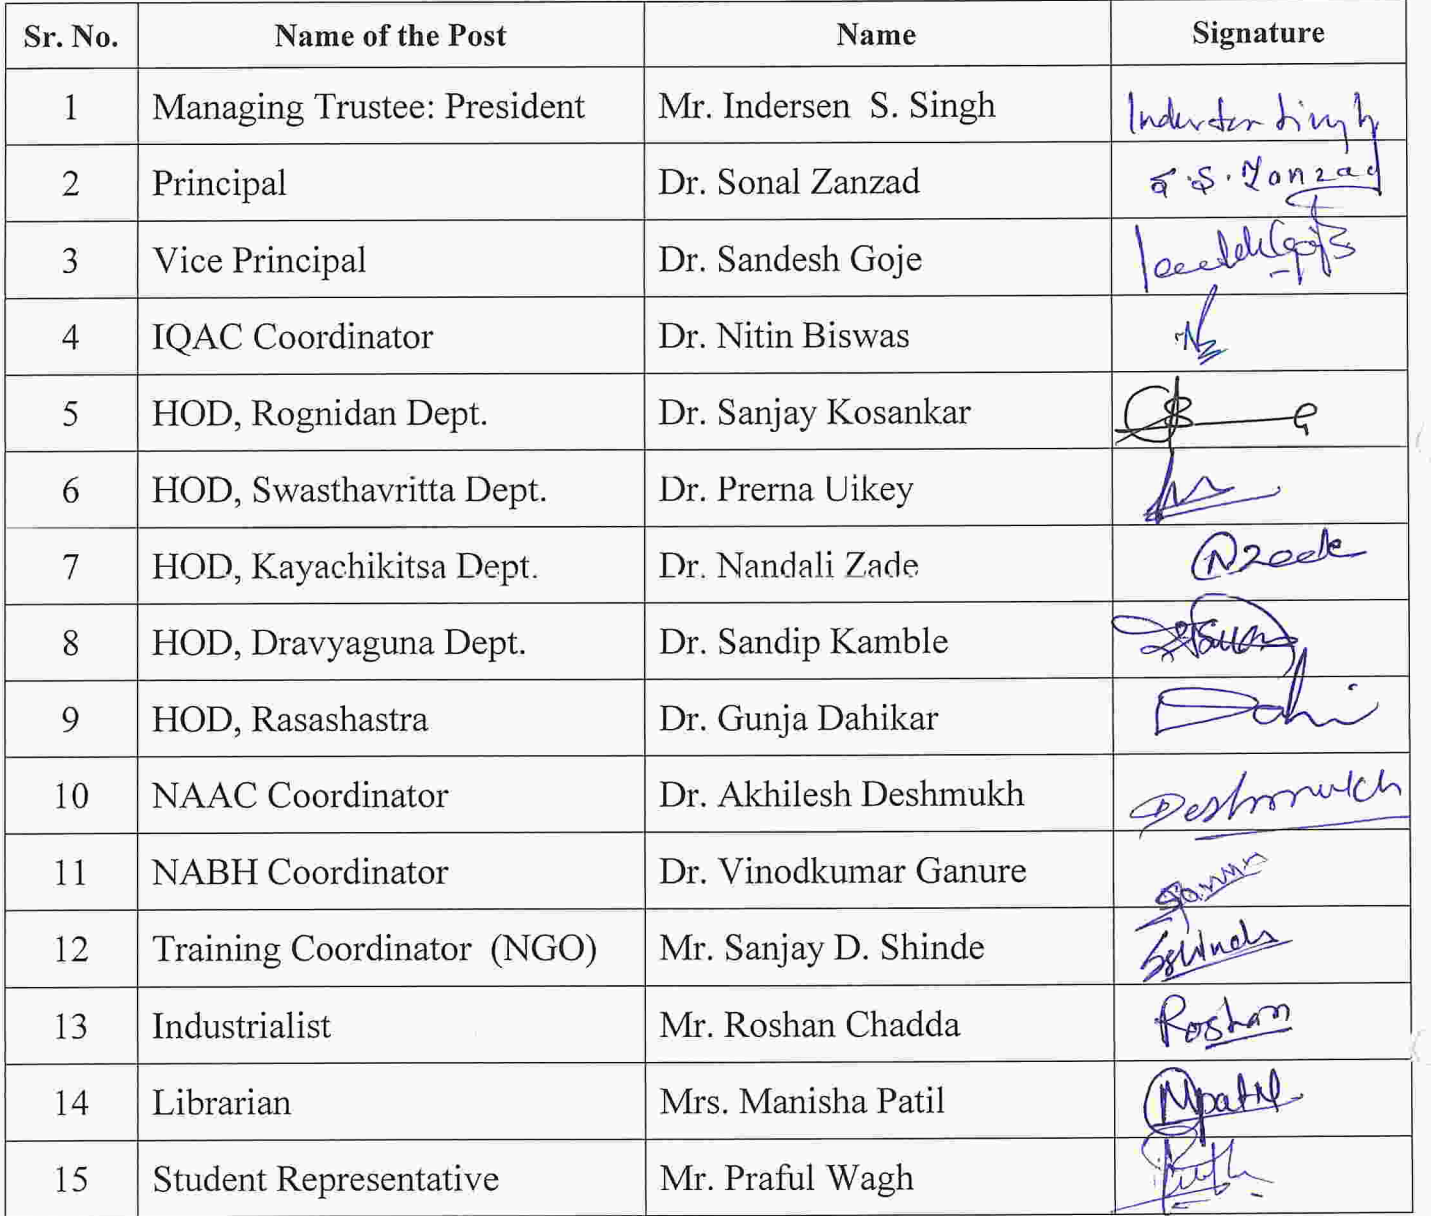 Sr. No. Name of the Post Name Signature
1 Managing Trustee: President Mr. Indersen S. Singh Indersen Singh
2 Principal Dr. Sonal Zanzad S. Zanzad
3 Vice Principal Dr. Sandesh Goje
4 IQAC Coordinator Dr. Nitin Biswas
5 HOD, Rognidan Dept. Dr. Sanjay Kosankar
6 HOD, Swasthavritta Dept. Dr. Prerna Uikey
7 HOD, Kayachikitsa Dept. Dr. Nandali Zade
8 HOD, Dravyaguna Dept. Dr. Sandip Kamble
9 HOD, Rasashastra Dr. Gunja Dahikar
10 NAAC Coordinator Dr. Akhilesh Deshmukh Deshmukh
11 NABH Coordinator Dr. Vinodkumar Ganure
12 Training Coordinator (NGO) Mr. Sanjay D. Shinde
13 Industrialist Mr. Roshan Chadda Roshan
14 Librarian Mrs. Manisha Patil Mpatil
15 Student Representative Mr. Praful Wagh